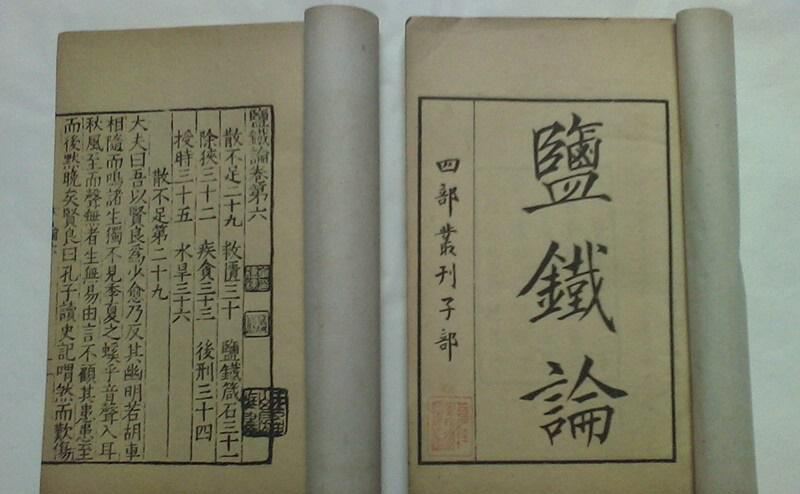 鹽鐵論
四部叢刊子部
鹽鐵論卷第六
散不足二十九 救匱三十 鹽鐵箴石三十一
除狹三十二 疾貪三十三 後刑三十四
授時三十五 水旱三十六
散不足第二十九
大夫曰吾以賢良爲少愈乃反其幽明若胡車
相隨而鳴諸生獨不見季夏之螇乎音聲入耳
秋風至而聲無者生無易由言不顧其患患至
而後黙晚矣賢良曰孔子讀史記喟然而歎傷